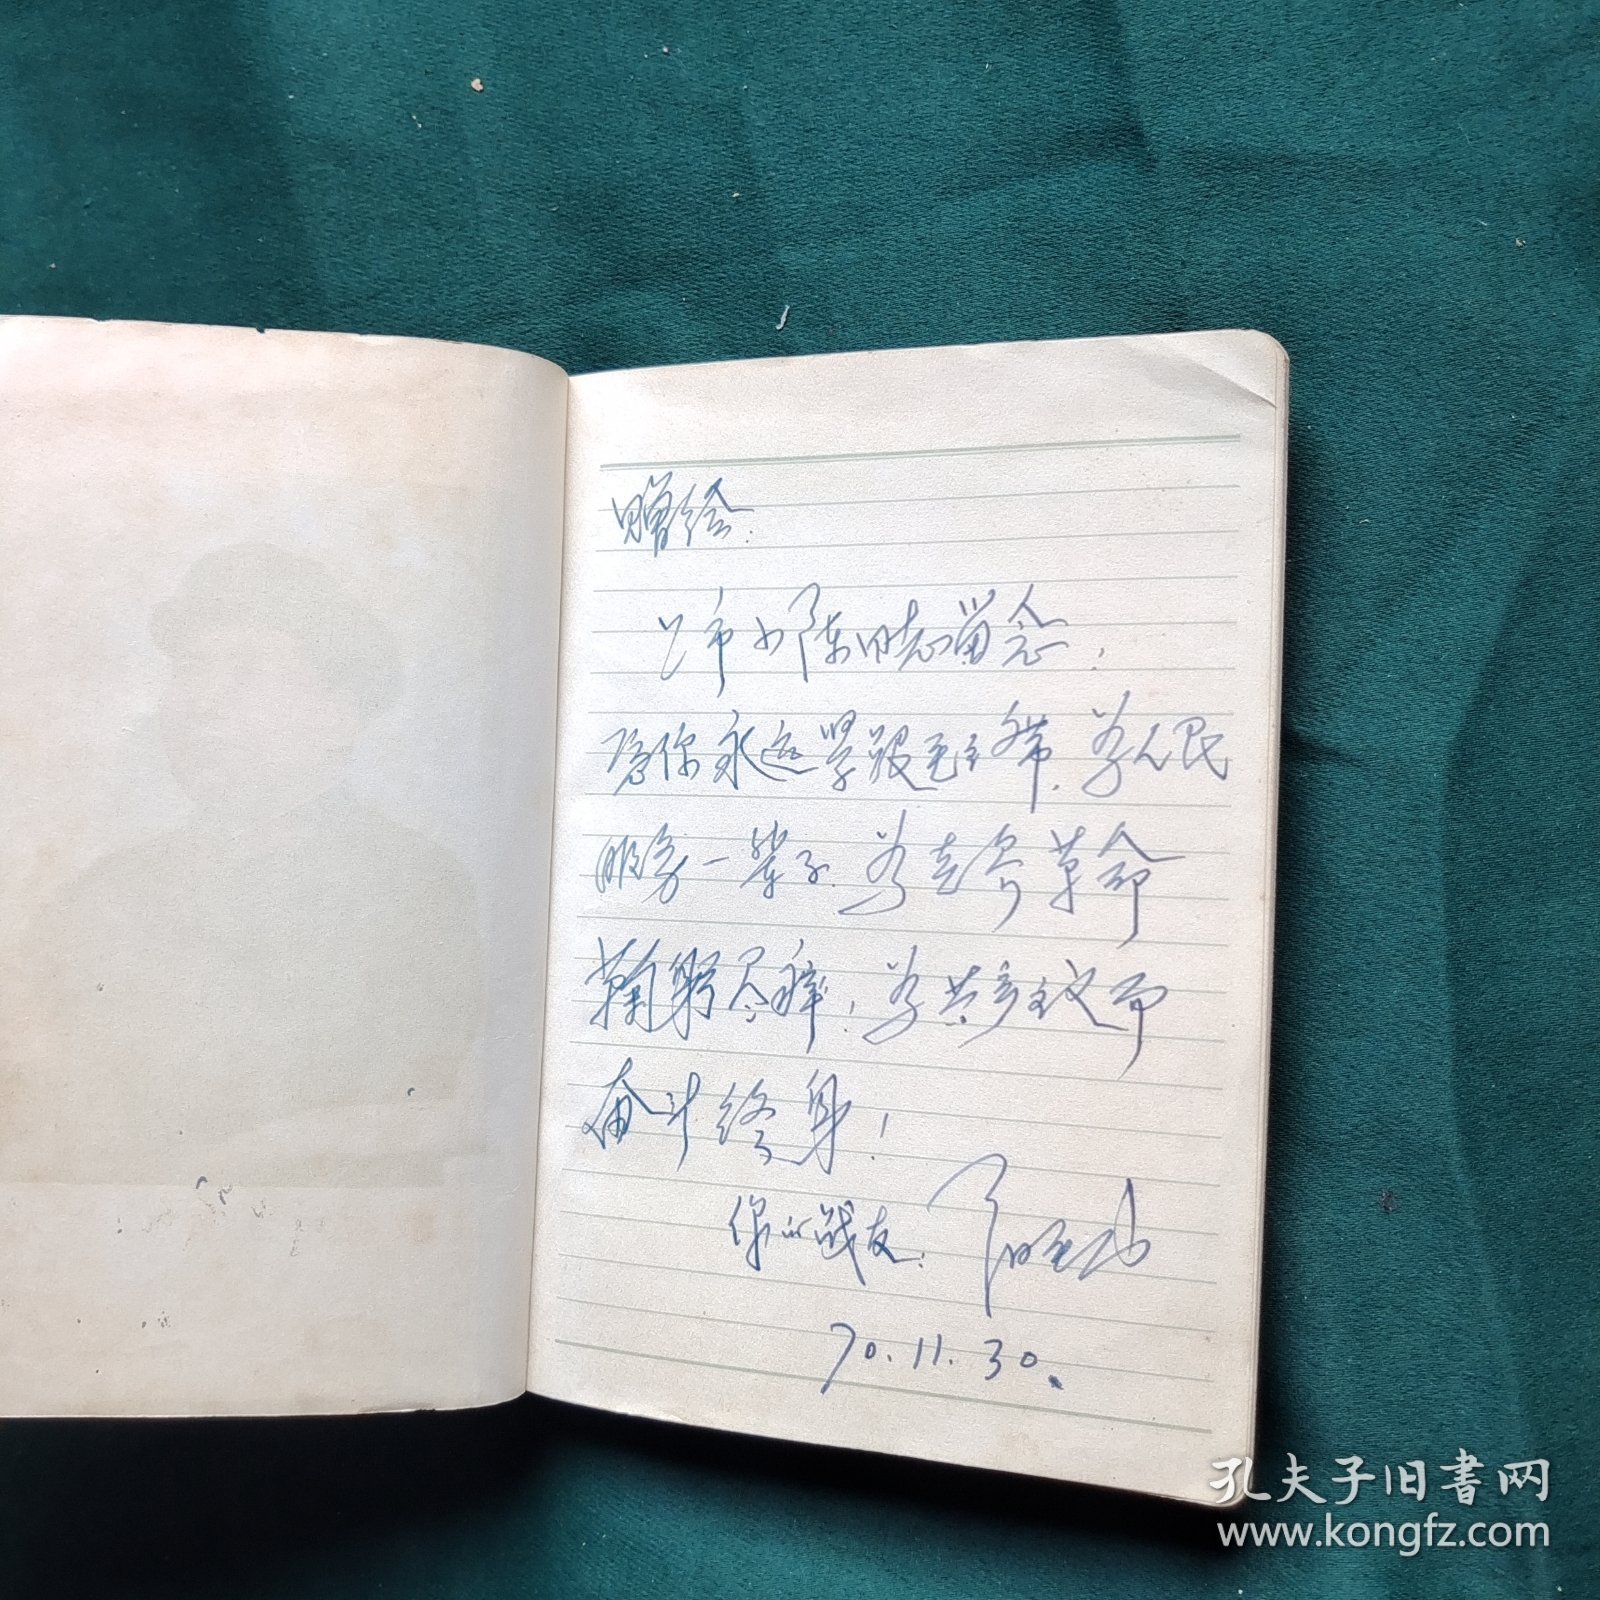 赠给:
小陈同志留念!
愿你永远紧跟毛主席,为人民
服务一辈子,为世界革命
鞠躬尽瘁,为共产主义而
奋斗终身!
你的战友:
70.11.30.
孔夫子旧书网
www.kongfz.com